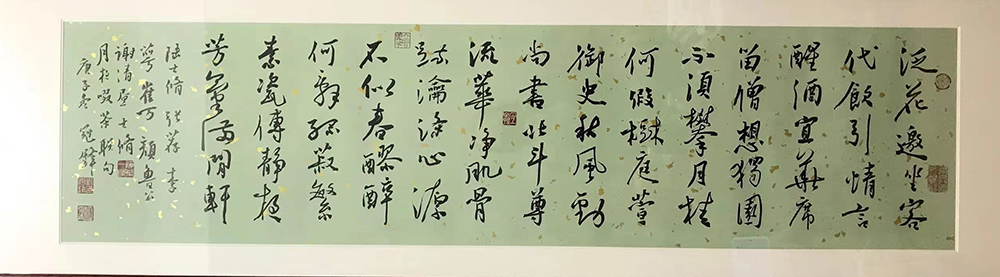 泛花邀坐客
代飲引情言
醒酒宜華席
留僧想獨園
不須攀月桂
何假樹庭萱
御史秋風勁
尚書北斗尊
流華淨肌骨
疏瀹滌心源
不似春醪醉
何辭綠菽繁
素瓷傳靜夜
芳氣滿閒軒
陸士脩 張薦 李
萼 崔万 顏魯公
謝清晝 士脩
月夜啜茶聯句
庚子冬